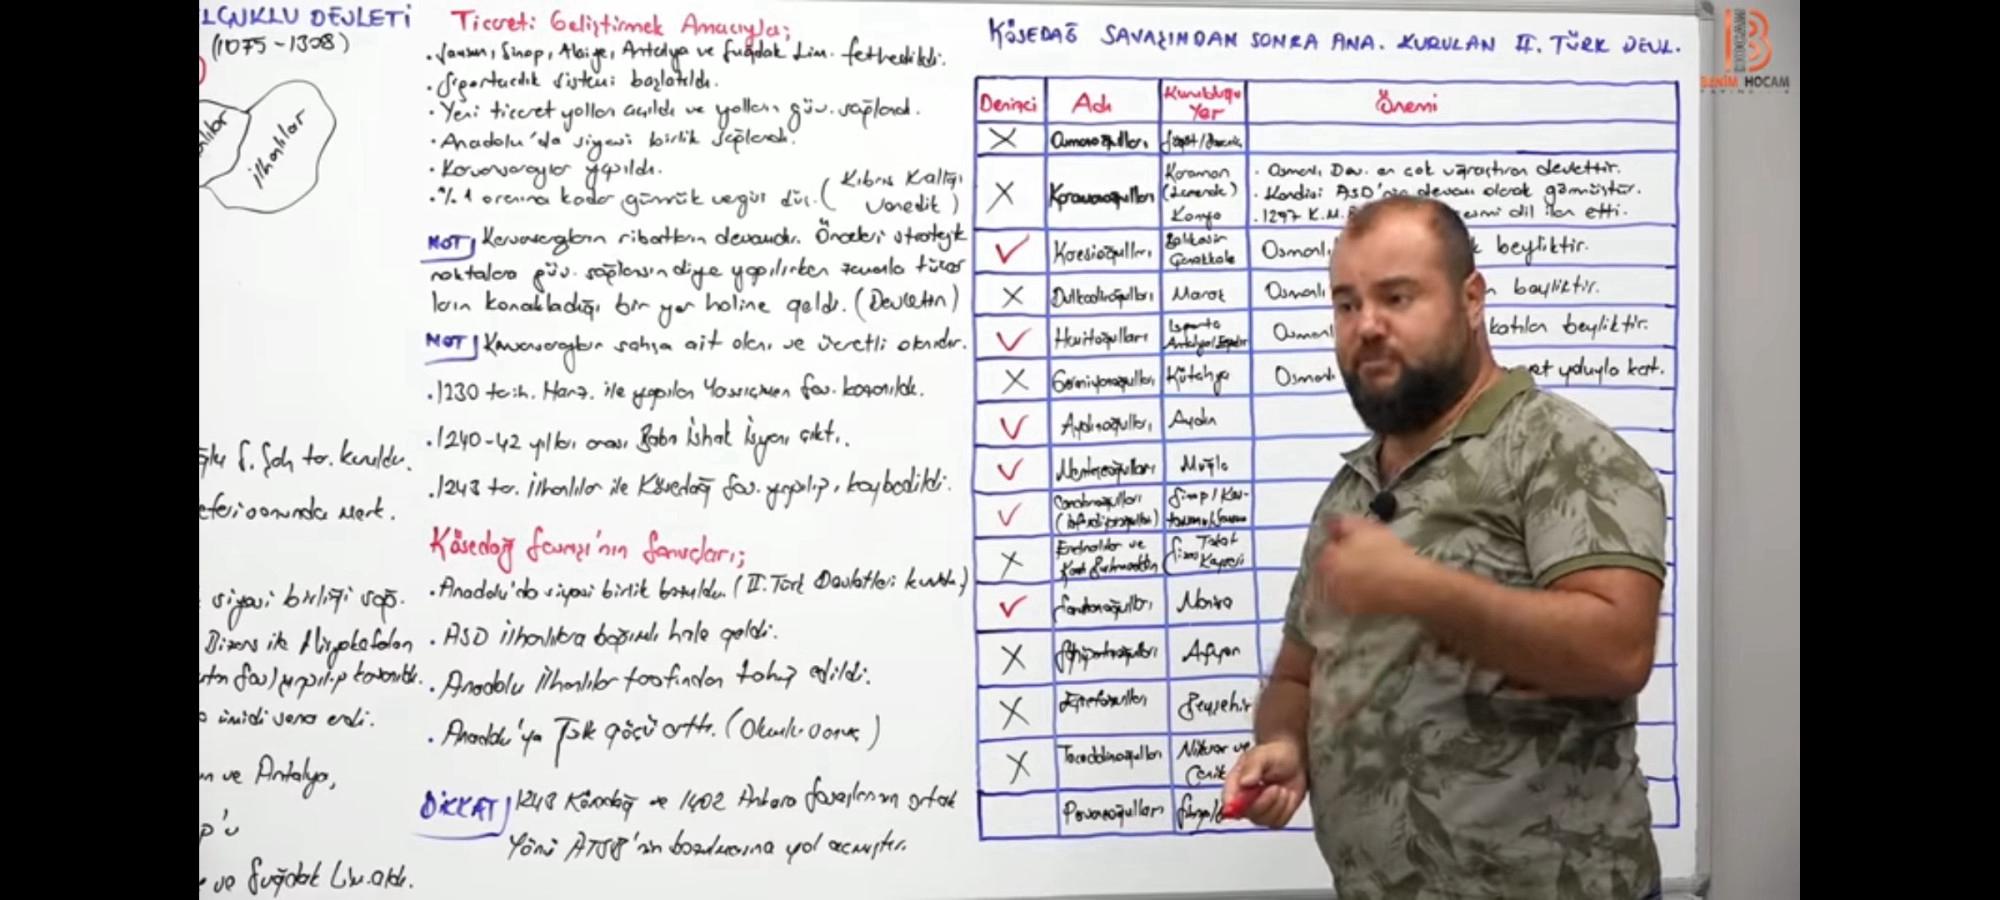 LÇUKLU DEVLETİ
(1075-1308)
ilhanlılar
oğlu S. Şah ta. kuruldu.
seferi sonunda Merk.
siyasi birliği sağ.
Bizans ile Miryokefalon
yapılıp kazanıldı.
ümidi sona erdi.
ve Antalya,
p'u
ve Suğdak Lim. aldı.
Ticareti Geliştirmek Amacıyla;
. Samsun, Sinop, Alaiye, Antalya ve Suğdak Lim. fethedildi.
. Sigortacılık sistemi başlatıldı.
. Yeni ticaret yolları açıldı ve yolların güv. sağland.
. Anadolu'da siyasi birlik sağlandı.
. Kervansaraylar yapıldı.
. % 1 oranına kadar gümrük vergisi düş. ( Kıbrıs Krallığı
Venedik )
NOT Kervansarayların ribatların devamıdır. Önceleri stratejik
noktalara güv. sağlansın diye yapılırken zamanla tüccar
ların konakladığı bir yer haline geldi. (Devletin)
NOT Kervansaraylar şahsa ait olanı ve ücretli olanıdır.
. 1230 tarih. Harz. ile yapılan Yassıçimen Sav. kazanıldı.
. 1240-42 yılları arası Baba İshak İsyanı çıktı.
. 1243 ta. İlhanlılar ile Kösedağ Sav. yapılıp, kaybedildi.
Kösedağ Savaşı'nın Sonuçları;
. Anadolu'da siyasi birlik bozuldu. (II. Türk Devletleri kuruldu)
. ASD İlhanlılara bağımlı hale geldi.
. Anadolu İlhanlılar tarafından tahrip edildi.
. Anadolu'ya Türk göçü arttı. (Olumlu sonuç)
DİKKAT 1243 Kösedağ ve 1402 Ankara Savaşlarının ortak
Yönü ATSB'nin bozulmasına yol açmıştır.
KÖSEDAĞ SAVAŞINDAN SONRA ANA. KURULAN II. TÜRK DEVL.
Denizci Adı Kurulduğu Yer Önemi
X Osmanoğulları Söğüt/Domaniç
X Karamanoğulları Karaman (Ermenek) Konya
. Osmanlı Dev. en çok uğraştıran devlettir.
. Kendisi ASD'nin devamı olarak görmüştür.
. 1297 K.M.B. resmi dil ilan etti.
✓ Karesioğulları Balıkesir Çanakkale Osmanlı beyliktir.
X Dulkadiroğulları Maraş Osmanlı beyliktir.
✓ Hamitoğulları Isparta Antalya/Eğirdir Osmanl katılan beyliktir.
X Germiyanoğulları Kütahya Osmanlı yoluyla kat.
✓ Aydınoğulları Aydın
✓ Menteşeoğulları Muğla
✓ Candaroğulları (İsfendiyaroğulları) Sinop / Kastamonu/Samsun
X Eretnalılar ve Kadı Burhanettin Sivas Tokat Kayseri
✓ Saruhanoğulları Manisa
X Sahipataoğulları Afyon
X Eşrefoğulları Beyşehir
X Taceddinoğulları Niksar ve Canik
Pervaneoğulları
BENİM HOCAM